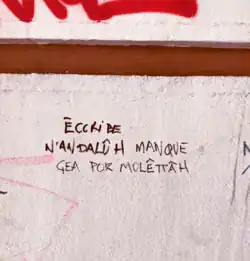 ÊCCRIBE
N'ANDALÛH MANQUE
ÇEA POR MOLÊTTÂH